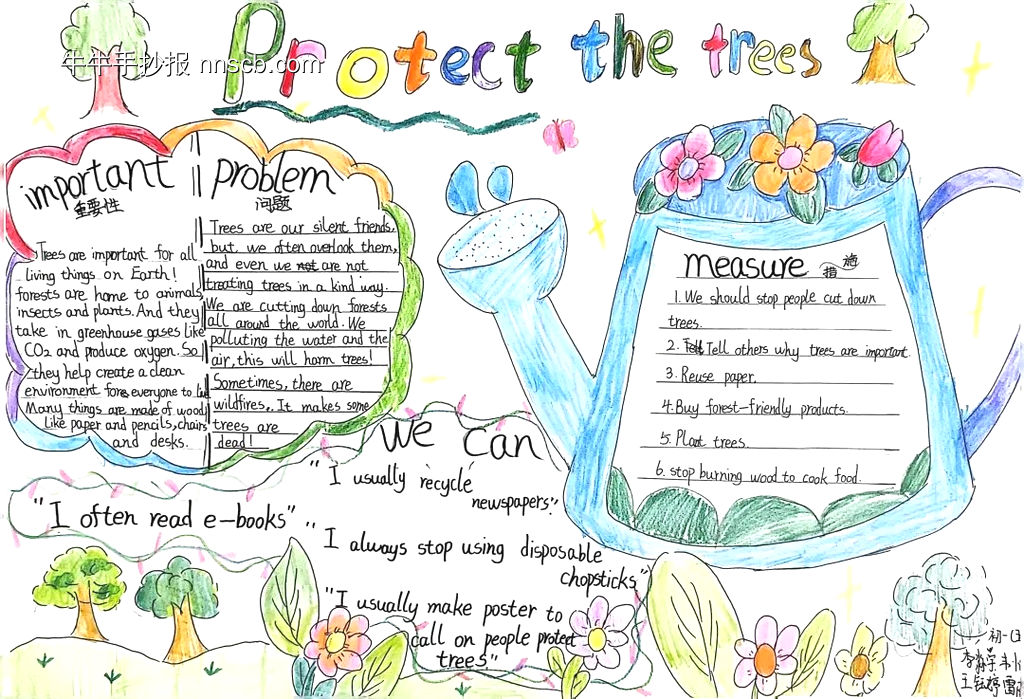 Protect the trees
牛牛手抄报 nnscb.com
important
重要性
Trees are important for all
living things on Earth!
forests are home to animals,
insects and plants. And they
take in greenhouse gases like
CO₂ and produce oxygen. So
they help create a clean
environment for everyone to live
Many things are made of wood,
like paper and pencils, chairs
and desks.
problem
问题
Trees are our silent friends.
but we often overlook them,
and even we are not
treating trees in a kind way.
We are cutting down forests
all around the world. We
polluting the water and the
air, this will harm trees!
Sometimes, there are
wildfires,. It makes some
trees are
dead!
measure 措施
1. We should stop people cut down
trees.
2. Tell others why trees are important.
3. Reuse paper.
4. Buy forest-friendly products.
5. Plant trees.
6. stop burning wood to cook food.
We can
"I usually recycle
newspapers."
"I often read e-books"
"I always stop using disposable
chopsticks"
"I usually make poster to
call on people protect
trees"
初一